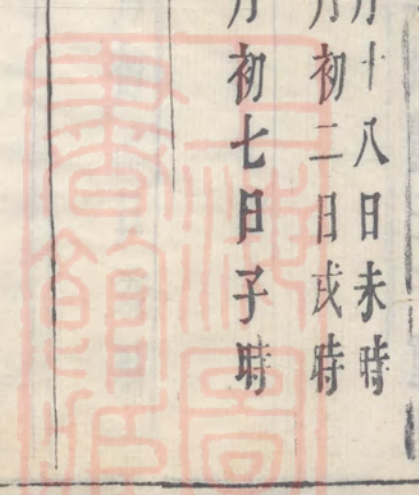 月十八日未時
月初二日戌時
月初七日子時